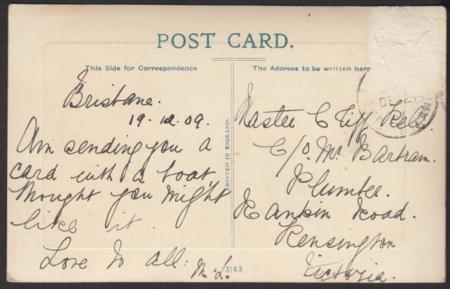 POST CARD.
This Side for Correspondence
The Address to be written here
Brisbane.
19.12.09.
Am sending you a
card with a boat
thought you might
like it.
Love to all. M.L.
PRINTED IN ENGLAND.
3143
Master Cliff
C/o Mr Bartram.
Plumber.
Rankin Road.
Kensington
Victoria.